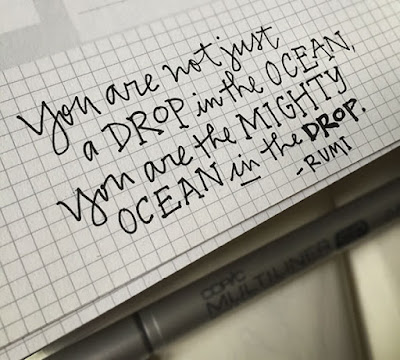 You are not just
a DROP in the OCEAN,
You are the MIGHTY
OCEAN in the DROP.
-RUMI
COPIC
MULTILINER